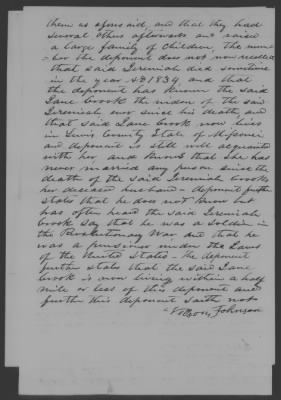 them as aforesaid, and that they had
several others afterwards and raised
a large family of Children, the num
ber the deponent does not now recollect
that said Jeremiah died sometime
in the year AD 1834 and that
the deponent has Known the said
Jane Crook the widow of the said
Jeremiah ever since his death, and
that said Jane Crook now lives
in Lewis County State of Missouri
and deponent is still well acquainted
with her and Knows that She has
never married any person since the
death of the said Jeremiah Crook
her deceased husband – deponent further
states that he does not Know but
has often heard the said Jeremiah
Crook Say that he was a Soldier in
the Revolutionary War and that he
was a pensioner under the Laws
of the United States – the deponent
further states that the said Jane
Crook is now living within a half
mile or less of this deponent and
further this deponent saith not
Johnson